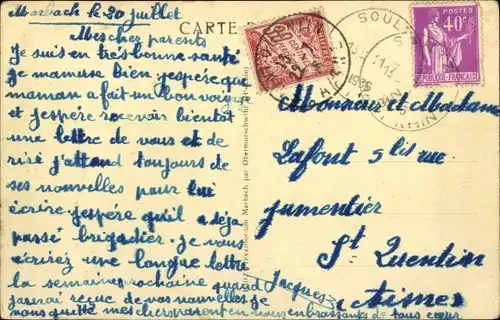 Marbach le 20 juillet
Mes cher parents
Je suis en très bonne santé
je mamuse bien jespére que
maman a fait un bon voyage
et jespére recevoir bientôt
une lettre de vous et de
riré j'attend toujours de
ses nouvelles pour lui
écrire jespére qu'il a déja
passé brigadier. je vous
écrirez une longue lettre
la semaine prochaine quand
jaurai reçue de vos nouvelles je
vous quitte mes chers parent en vous enbrassants de tous cœur
Jacques
CARTE
Marbach par Obermorschwihr
SOULTZ
POSTES
40c
REPUBLIQUE FRANÇAISE
Monsieur et Madame
Lafont 5 bis rue
jumentier
St Quentin
(Aisne)